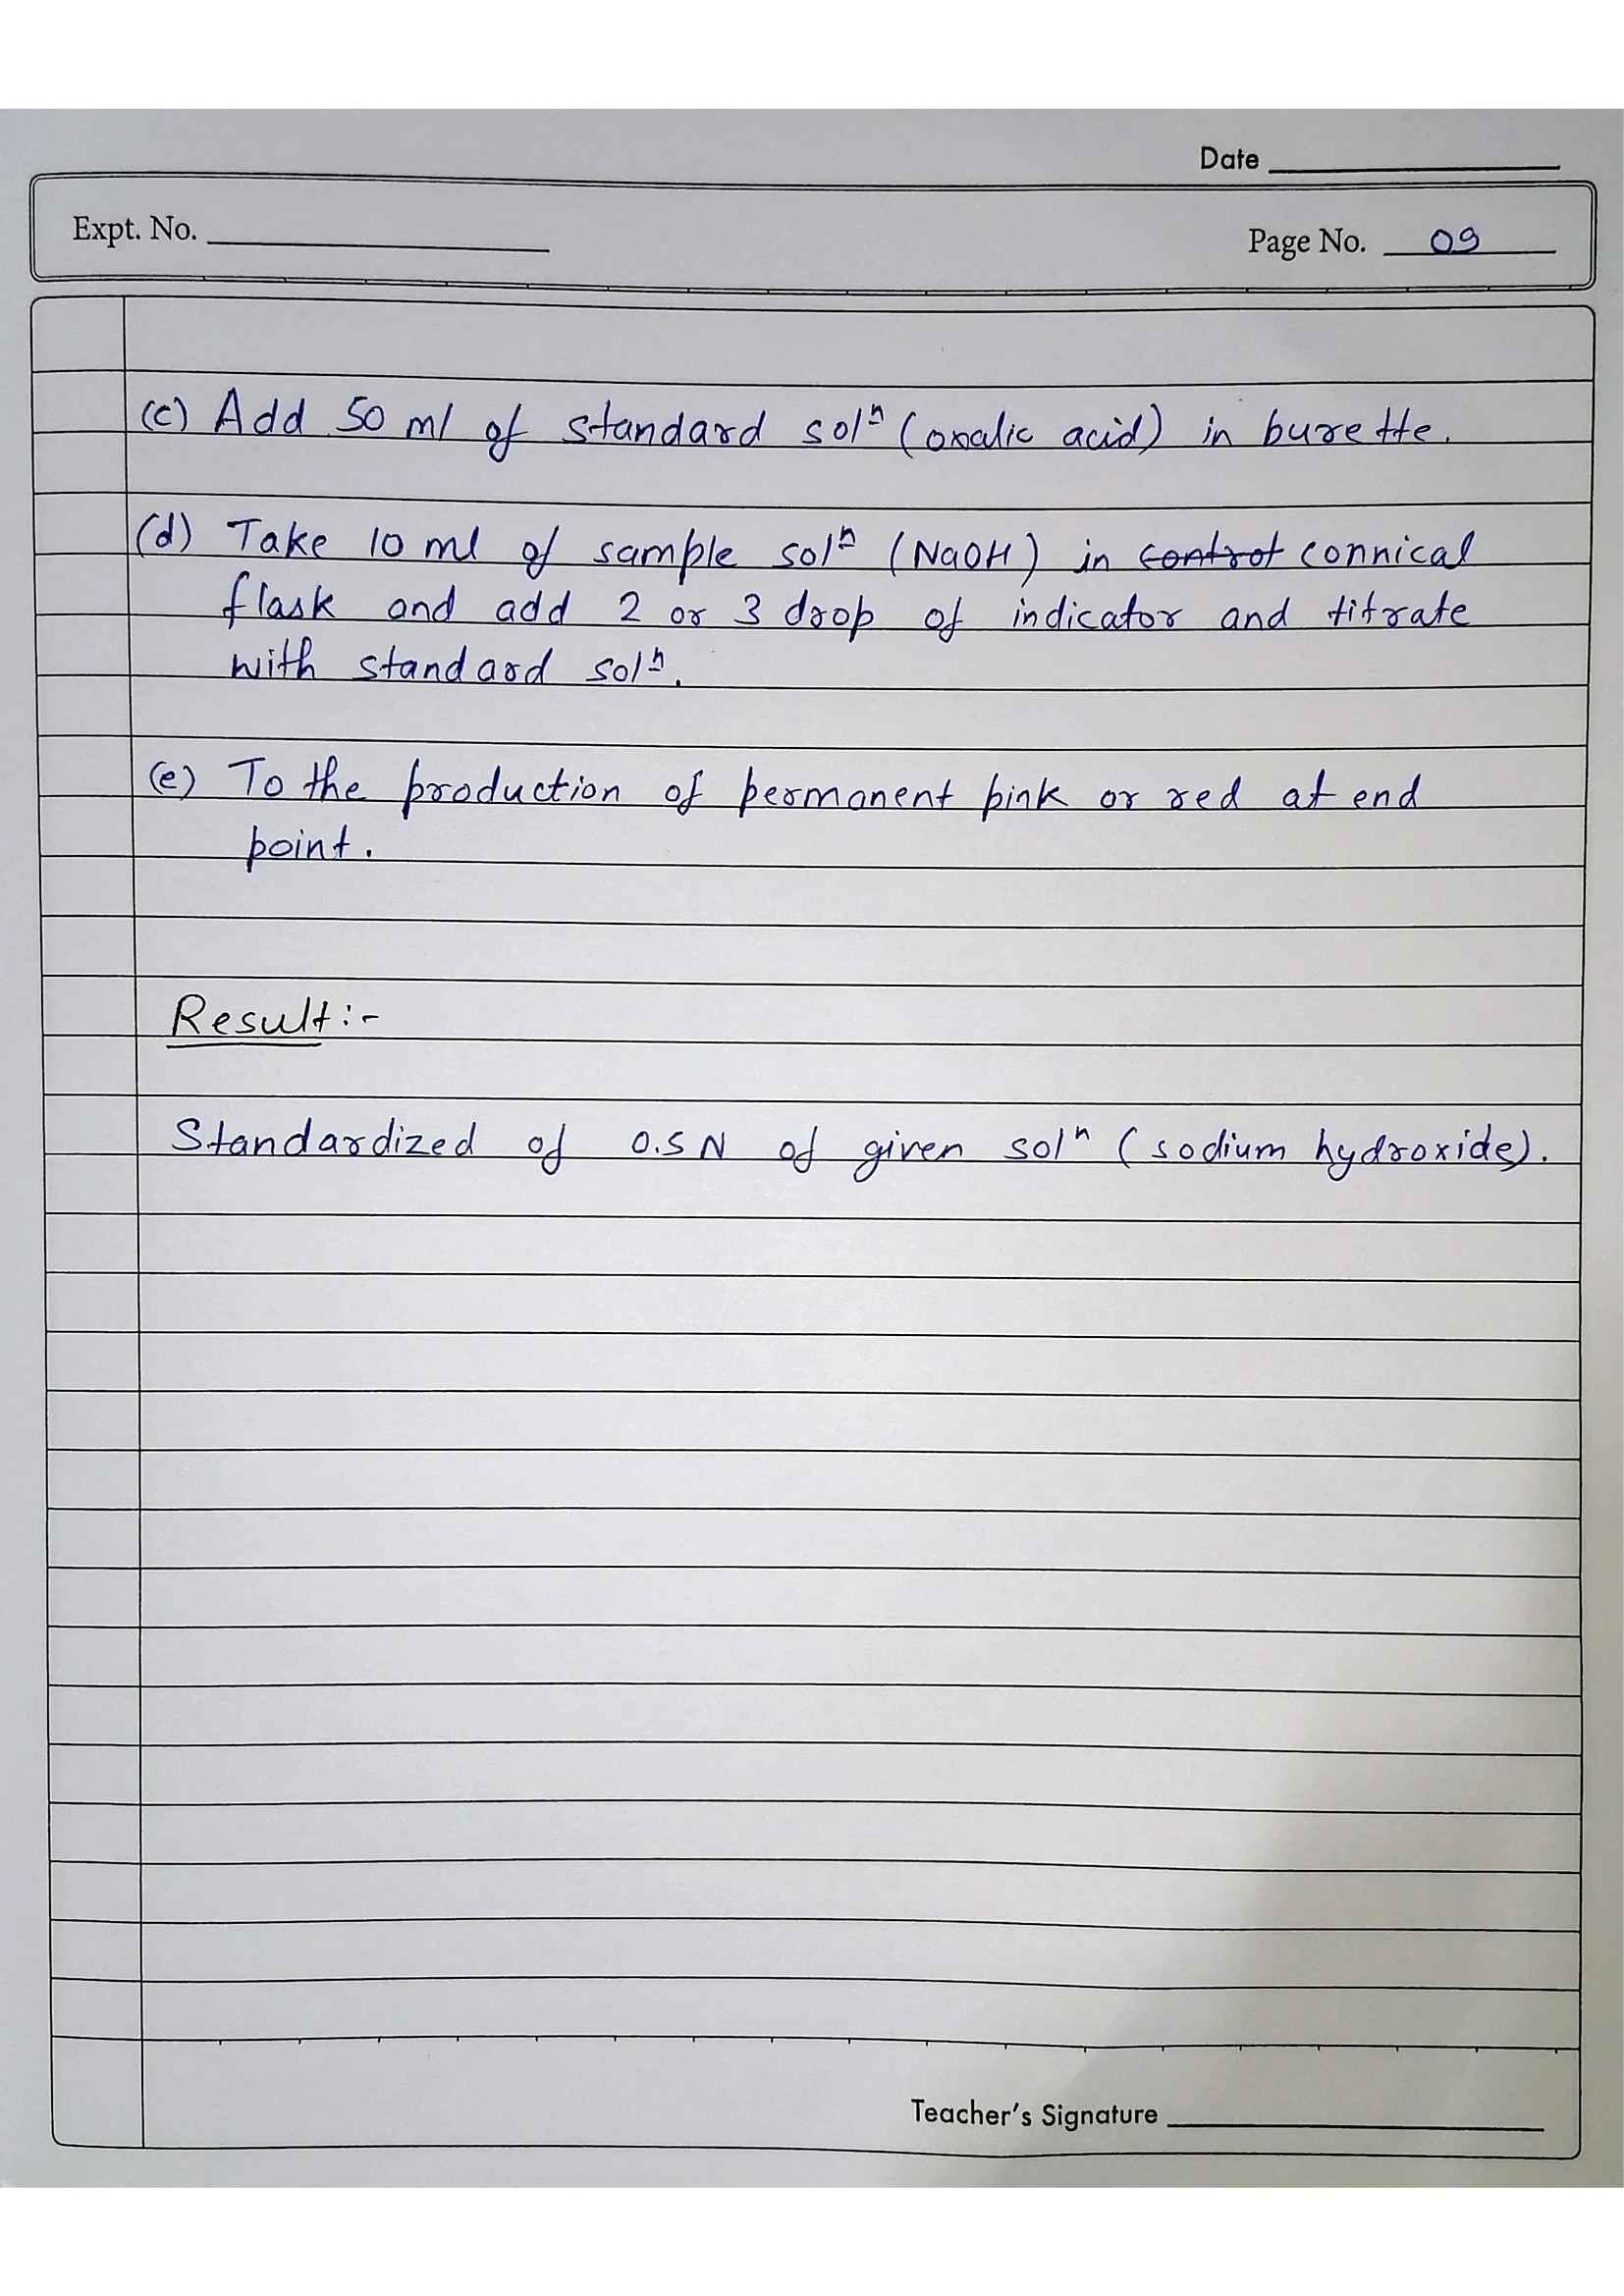 Date
Expt. No.
Page No. 09
(c) Add 50 ml of standard solⁿ (oxalic acid) in burette.
(d) Take 10 ml of sample solⁿ (NaOH) in control connical
flask and add 2 or 3 drop of indicator and titrate
with standard solⁿ.
(e) To the production of permanent pink or red at end
point.
Result :-
Standardized of 0.5 N of given solⁿ (sodium hydroxide).
Teacher's Signature